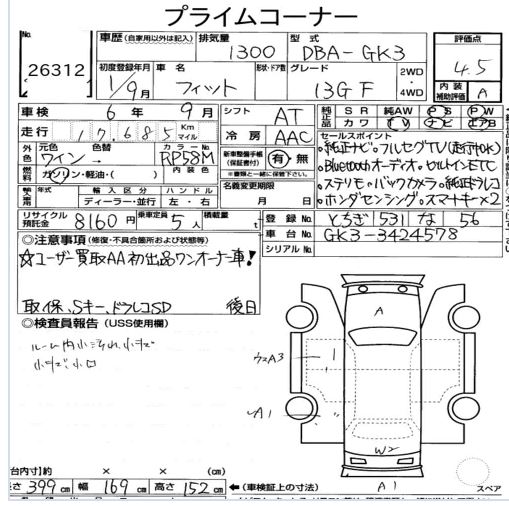 プライムコーナー
No. 26312
車歴 (自家用以外は記入) 排気量 1300 型式 DBA-GK3 評価点 4.5
初度登録年月 1/9月 車名 フィット 形状・ドア数 グレード 13GF 2WD 4WD 内装補助評価 A
車検 6年 9月 シフト AT 純正品 SR 純AW PS PW
走行 17,685 Km マイル 冷房 AAC カワ ナビ エアB
外色 元色 ワイン 色替 → カラーNo. RP58M 新車整備手帳(保証書付) 有・無
セールスポイント
・純正ナビ・フルセグTV(走行中OK)
・Bluetoothオーディオ・ビルトインETC
・ステリモ・バックカメラ・純正ドラレコ
・ホンダセンシング・スマートキー×2
燃料 ガソリン・軽油・( ) 内装色 ↑書類と一緒に保管下さい。
年式 輸入区分 ハンドル 名義変更期限
ディーラー・並行 左・右 月 日
リサイクル預託金 8160円 乗車定員 5人 積載量 t 登録No. とちぎ 531 な 56
車台No. GK3-3424578
シリアルNo.
◎注意事項 (修復・不具合箇所および状態等)
☆ユーザー買取AA初出品ワンオーナー車!
取保、Sキー、ドラレコSD 後日
◎検査員報告 (USS使用欄)
ルーム内小汚れ、小キズ
小キズ、小凹
A
ウスA3
A1
W2
A1
スペア
荷台内寸(約) × × (cm)
長さ 399cm 幅 169cm 高さ 152cm ←(車検証上の寸法)